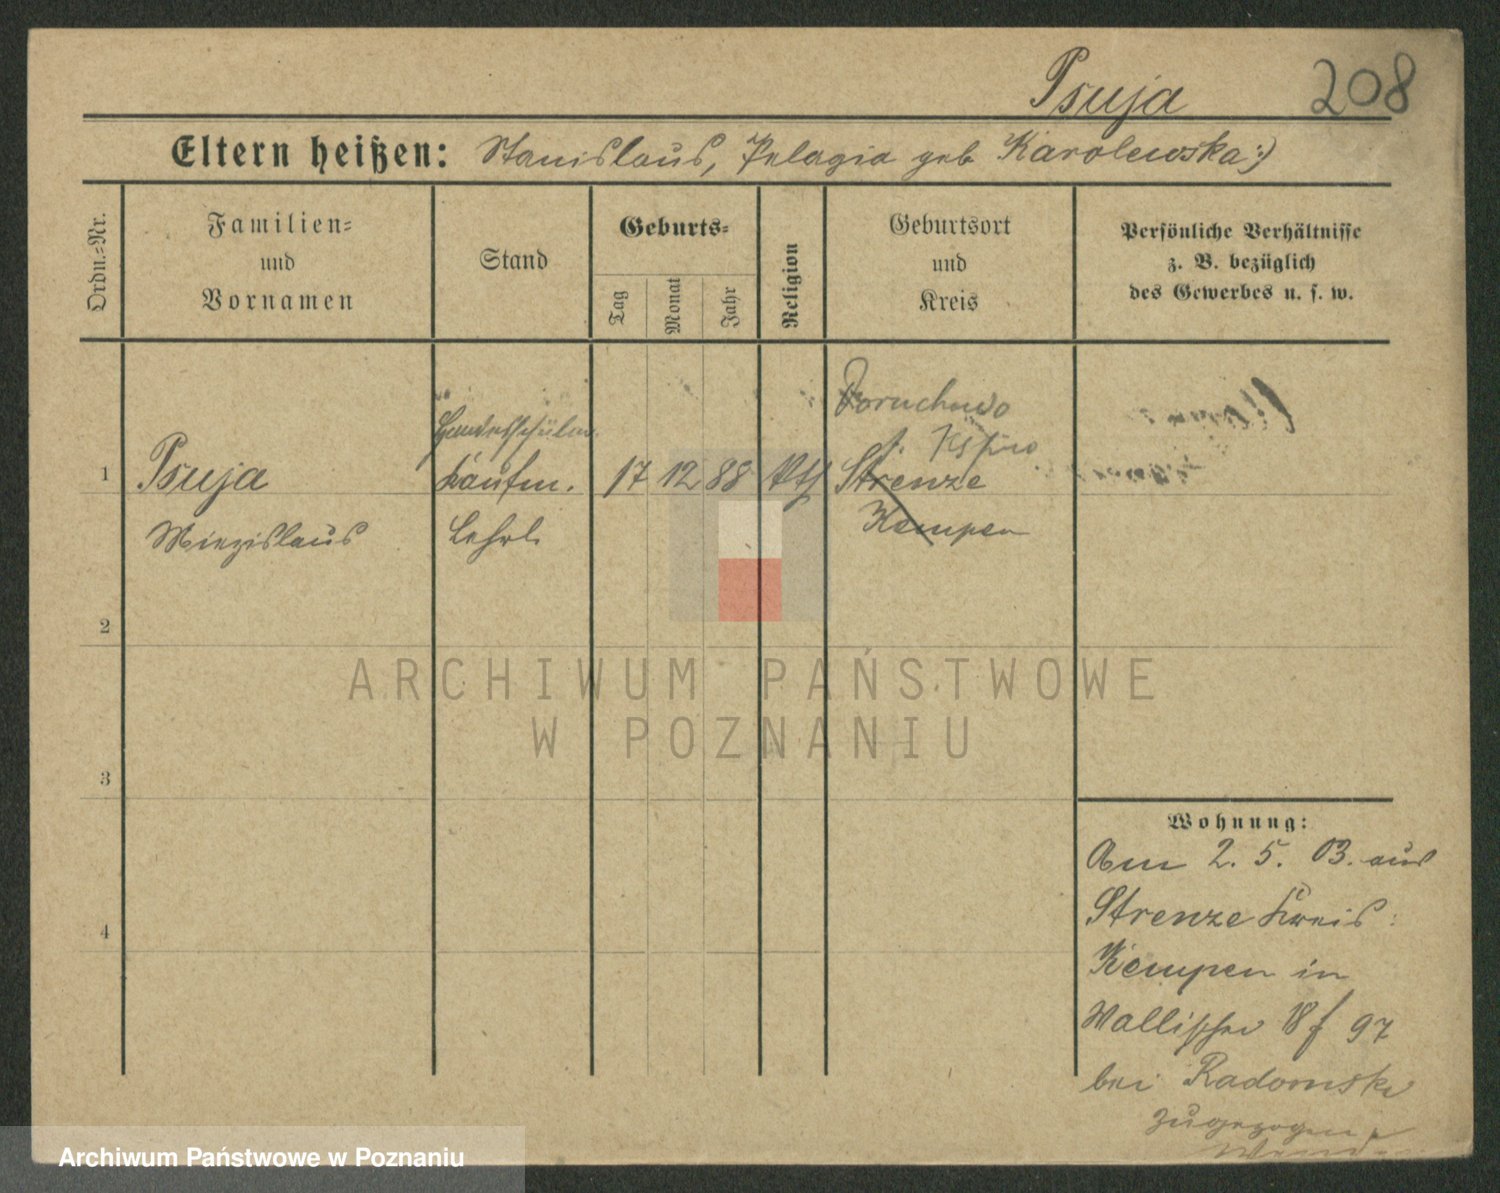 Psuja 208
Eltern heißen: Stanislaus, Pelagia geb Karolewska :)
Ordn.-Nr.
Familien-
und
Vornamen
Stand
Geburts-
Tag
Monat
Jahr
Religion
Geburtsort
und
Kreis
Persönliche Verhältnisse
z. B. bezüglich
des Gewerbes u. s. w.
Doruchowo
1 Psuja Kaufm. 17 12 88 kth Strenze
Miezislaus Lehrl. Kempen
2
3
4
Wohnung:
Am 2. 5. 03. aus
Strenze Kreis
Kempen in
Wallischei 18 f 97
bei Radomski
zugezogen
ARCHIWUM PAŃSTWOWE
W POZNANIU
Archiwum Państwowe w Poznaniu